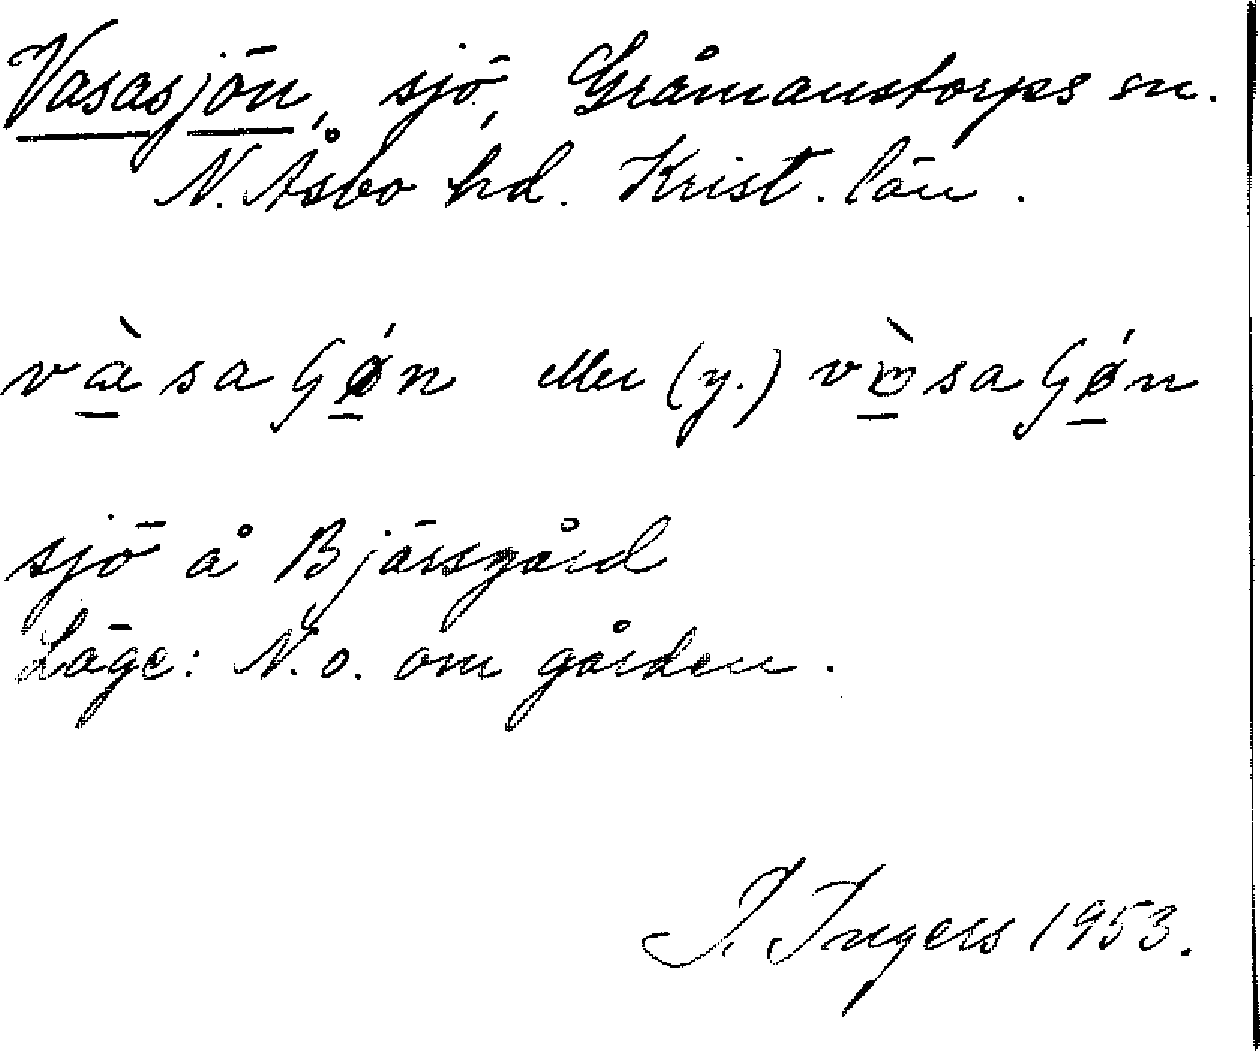 Vasasjön, sjö, Gråmanstorps sn.
N. Åsbo hd. Krist. län.
eller (y.)
sjö å Bjärsgård
Läge: N.o. om gården.
I. Ingers 1953.